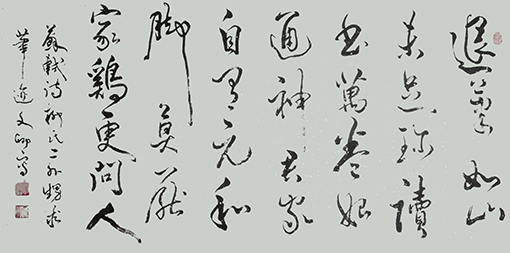 退筆如山
未足珍讀
書萬卷始
通神君家
自有元和
脚莫厭
家鷄更問人
蘇軾詩柳氏二外甥求
筆迹文